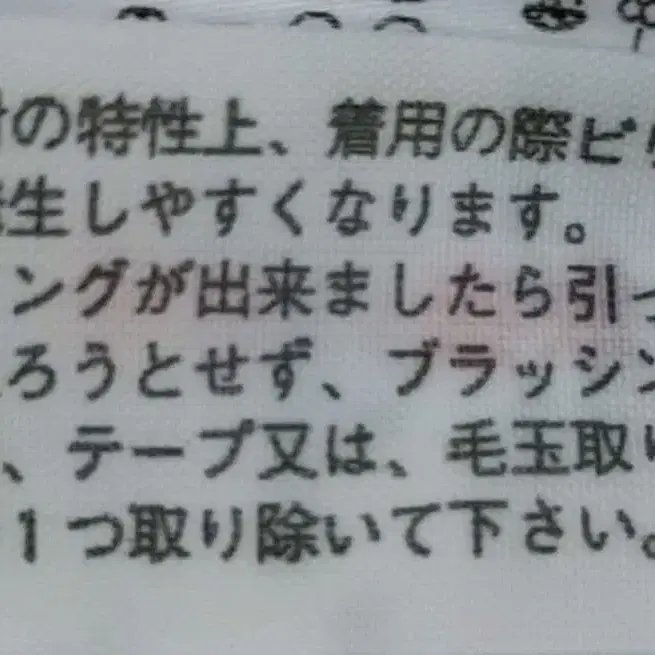 の特性上、着用の際ピ
生しやすくなります。
ングが出来ましたら引っ
ろうとせず、ブラッシン
、テープ又は、毛玉取り
1つ取り除いて下さい。